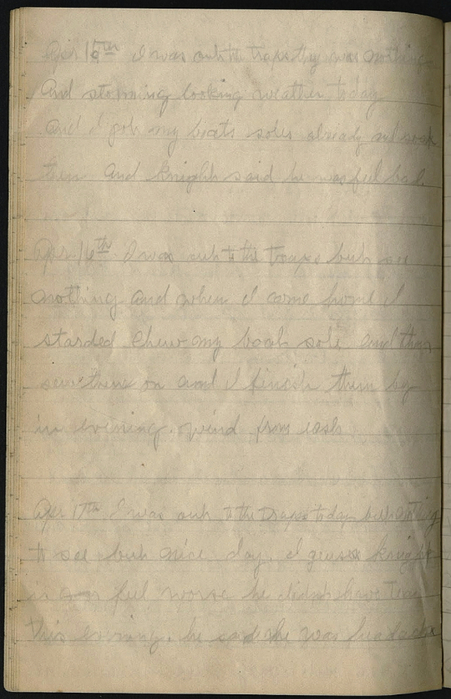 Apr 15th I was out to the traps they was nothing
And storming looking weather today
And I got my boots soles already and soak
them And Knight said he was feel bad.
Apr 16th I was out to the traps but see
nothing and when I came home I
starded chew my boot sole and then
sew them on and I finish them by
in evening. wind from east
Apr 17th I was out to the traps today but nothing
to see but nice day. I guess Knight
is feel worse he didn't have tea
this evening. he said he was headache